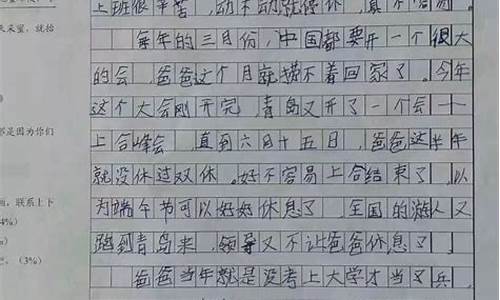 上班很辛苦,动不动就停休,真不容易
每年的三月份,中国都要开一个很大
的会,爸爸这个月就捞不着回家了。今年
这个大会刚开完,青岛又开了一个会——
上合峰会,直到六月十五日,爸爸这半年
就没休过双休。好不容易上合结束了,以
为端午节可以好好休息了,全国的游人又
跑到青岛来,领导又不让爸爸休息了。
爸爸当年就是没考上大学才当了兵,
是因为你们
联系上下
4%)
(3%)